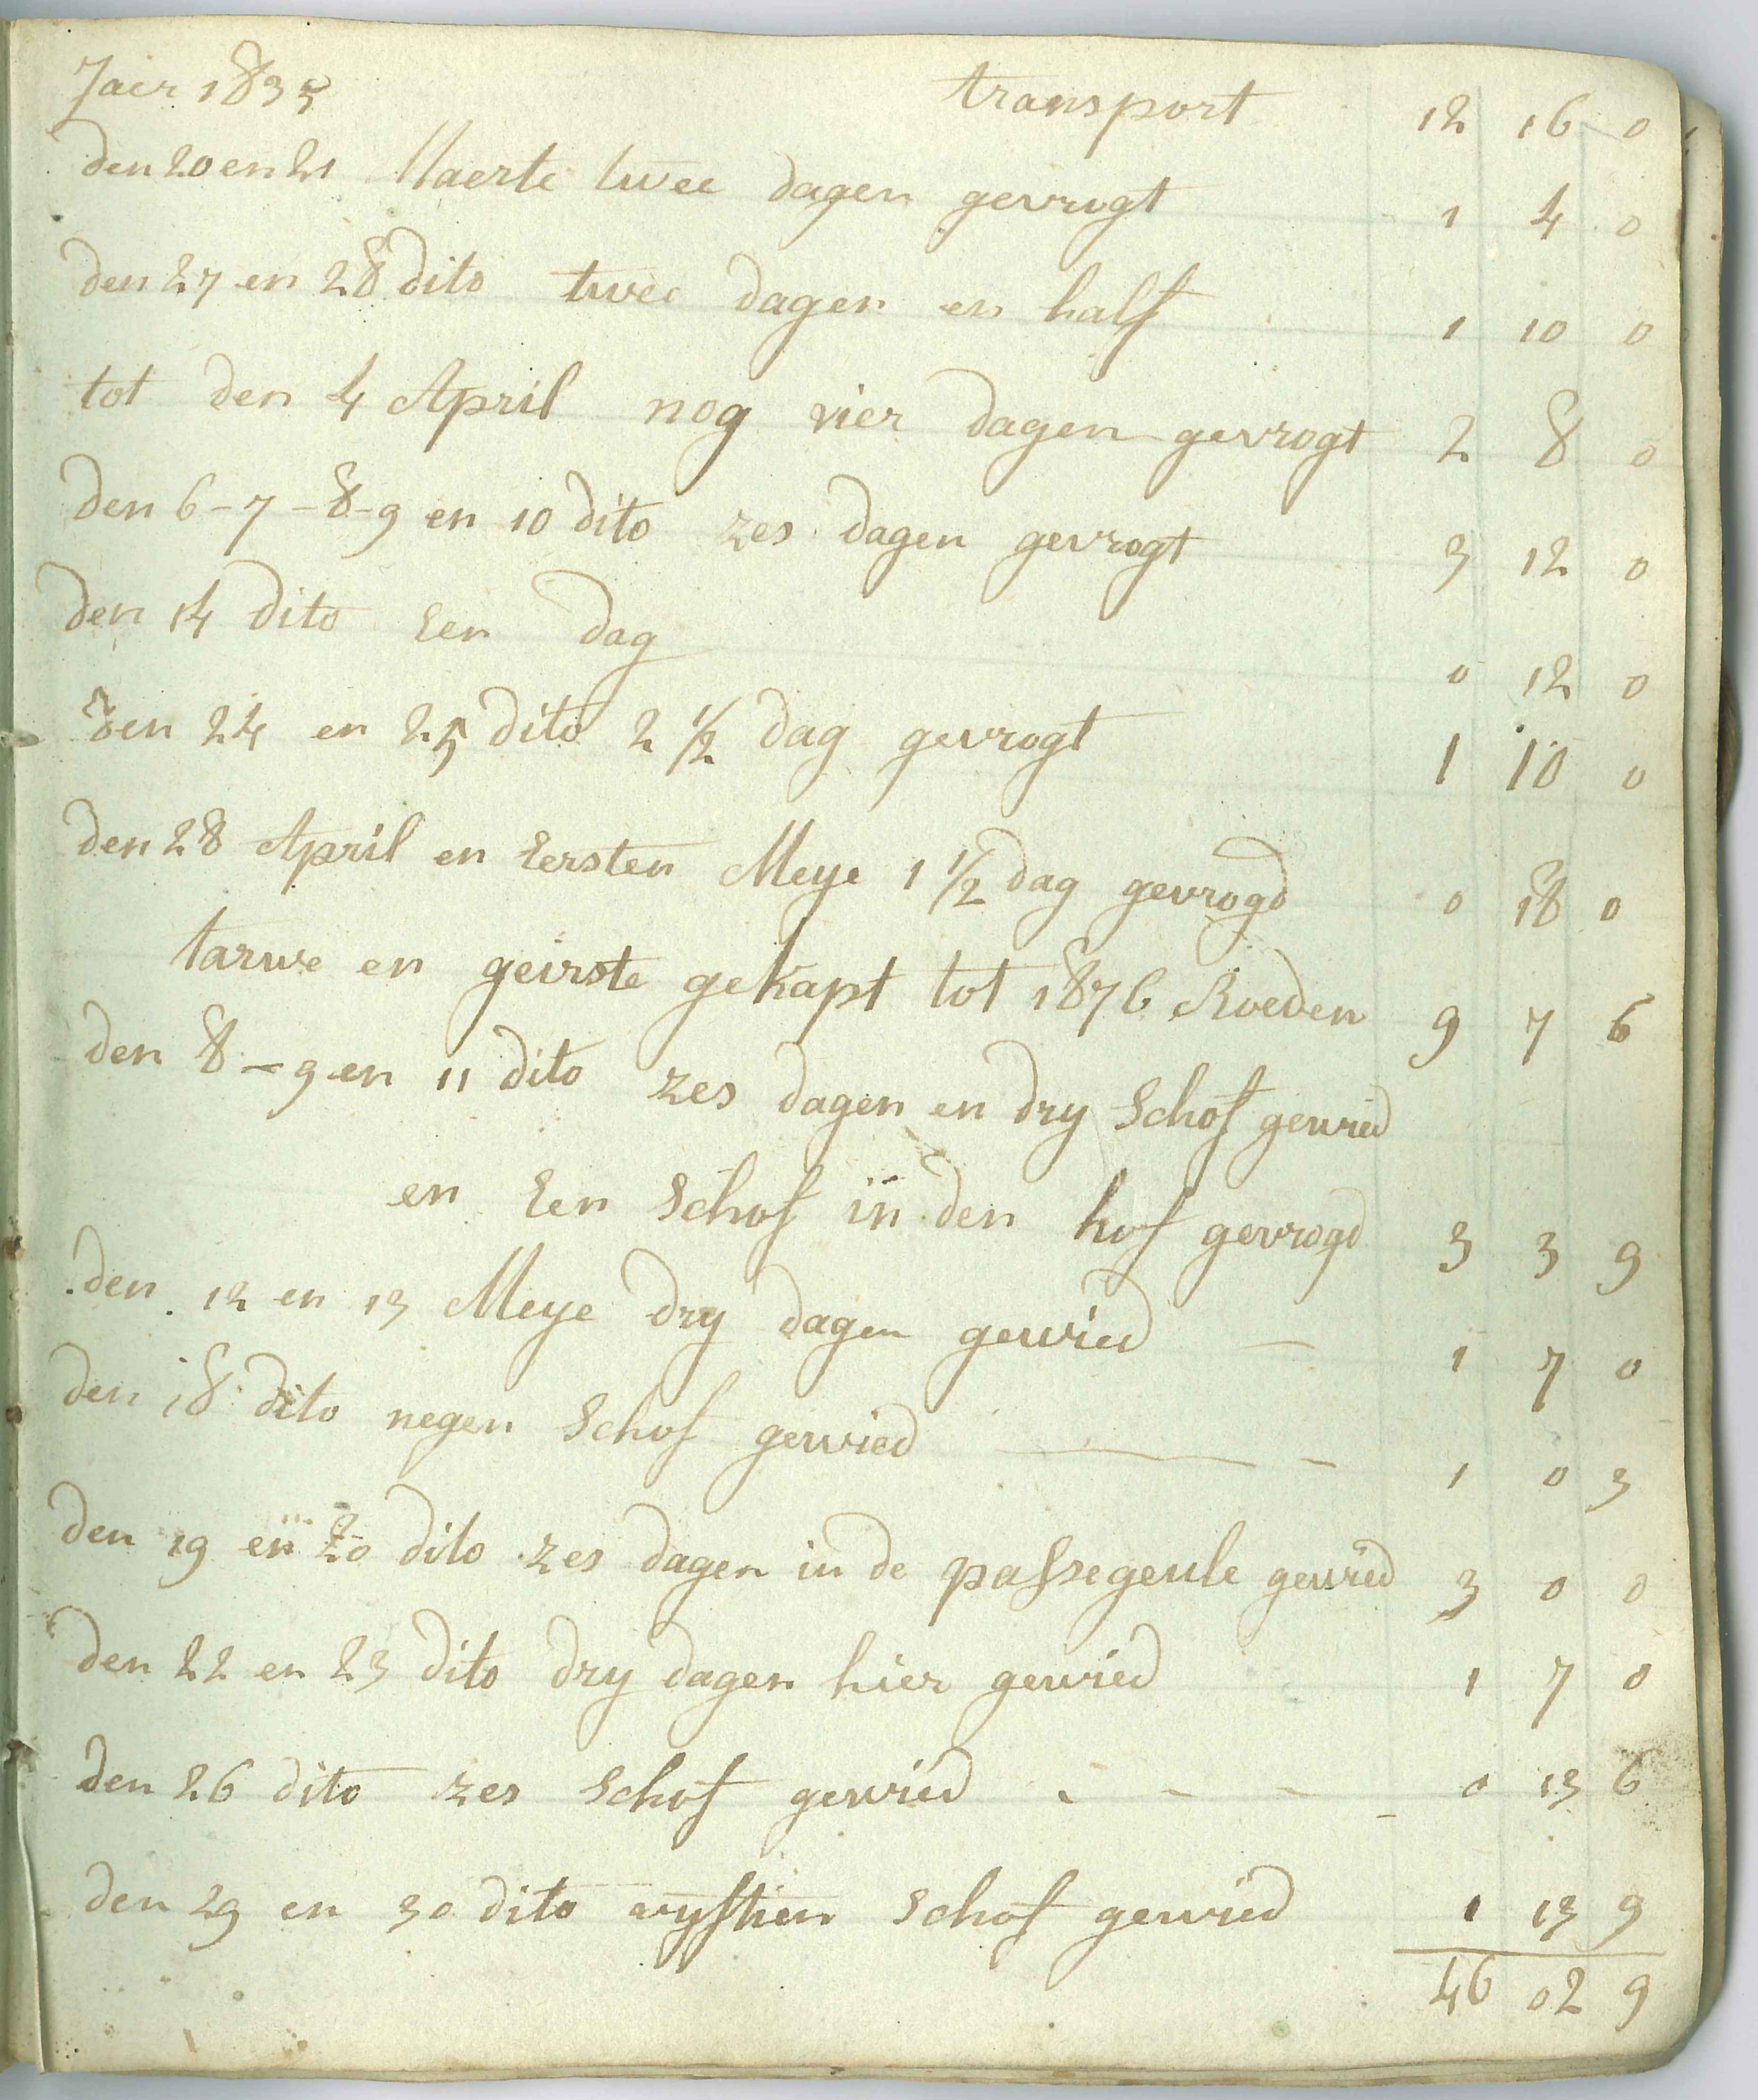 Jaer 1835 transport 12 16 0
den 20 en 21 Maerte twee dagen gevrogt 1 4 0
den 27 en 28 dito twee dagen en half 1 10 0
tot den 4 April nog vier dagen gevrogt 2 8 0
den 6-7-8-9 en 10 dito zes dagen gevrogt 3 12 0
den 14 dito Een dag 0 12 0
den 24 en 25 dito 2 1/2 dag gevrogt 1 10 0
den 28 April en Eersten Meye 1 1/2 dag gevrogd 0 18 0
tarwe en geirste gekapt tot 1876 Roeden 9 7 6
den 8-9 en 11 dito zes dagen en dry Schof gewied
en Een Schof in den hof gevrogd 3 3 9
den 12 en 13 Meye dry dagen gewied — 1 7 0
den 18 dito negen Schof gewied — - 1 0 3
den 19 en 20 dito zes dagen in de passegeule gewied 3 0 0
den 22 en 23 dito dry dagen hier gewied 1 7 0
den 26 dito zes Schof gewied - - - - 0 13 6
den 29 en 30 dito vyftien Schof gewied 1 13 9
46 02 9